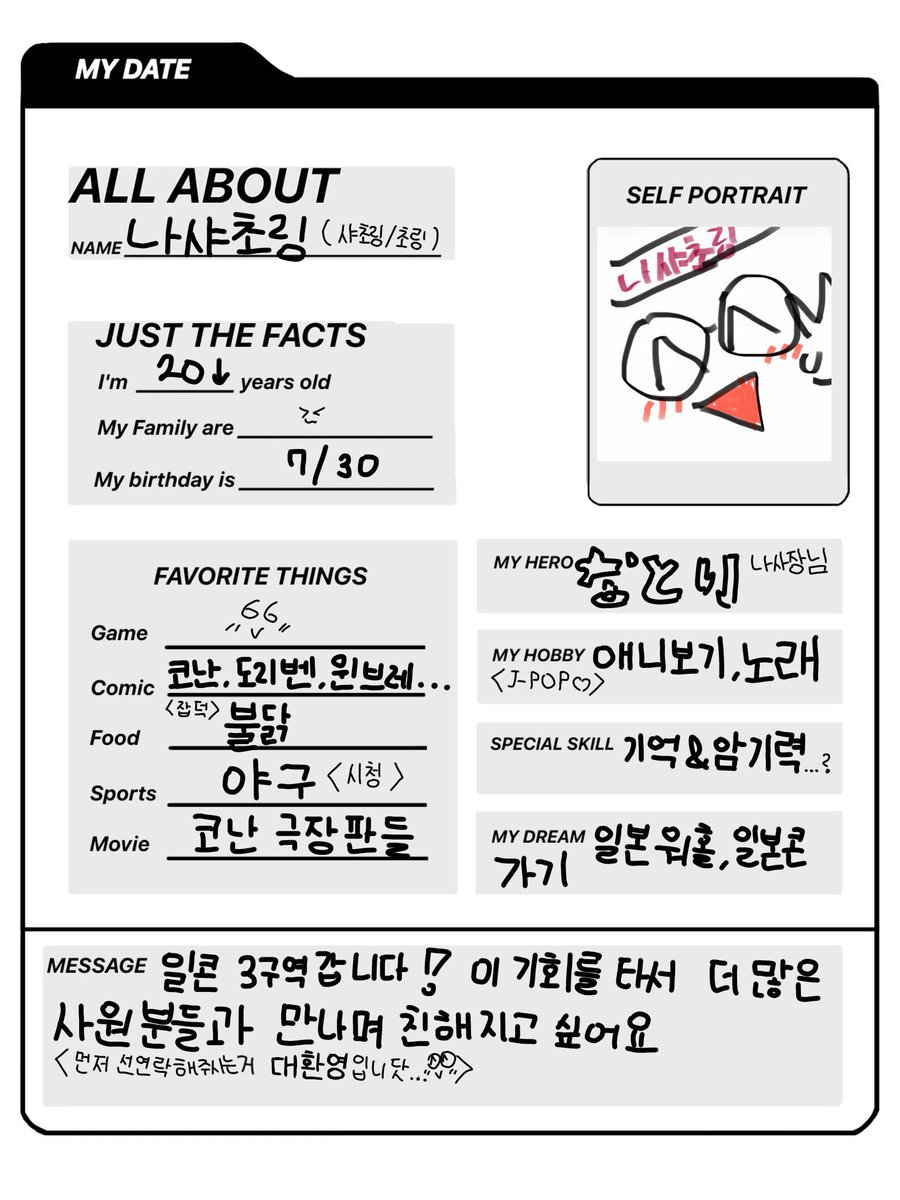 MY DATE
ALL ABOUT
NAME 나샤초링 (샤초링/초링)
SELF PORTRAIT
나샤초링
JUST THE FACTS
I'm 20↓ years old
My Family are
My birthday is 7/30
FAVORITE THINGS
Game
Comic 코난, 도리벤, 윈브레...
<잡덕>
Food 불닭
Sports 야구 <시청>
Movie 코난 극장판들
MY HERO 나사장님
MY HOBBY 애니보기, 노래
<J-POP♡>
SPECIAL SKILL 기억&암기력...?
MY DREAM 일본워홀, 일본콘
가기
MESSAGE 일콘 3구역잡니다!? 이 기회를 타서 더 많은
사원분들과 만나며 친해지고 싶어요
<먼저 선연락해주시는거 대환영입니닷...>